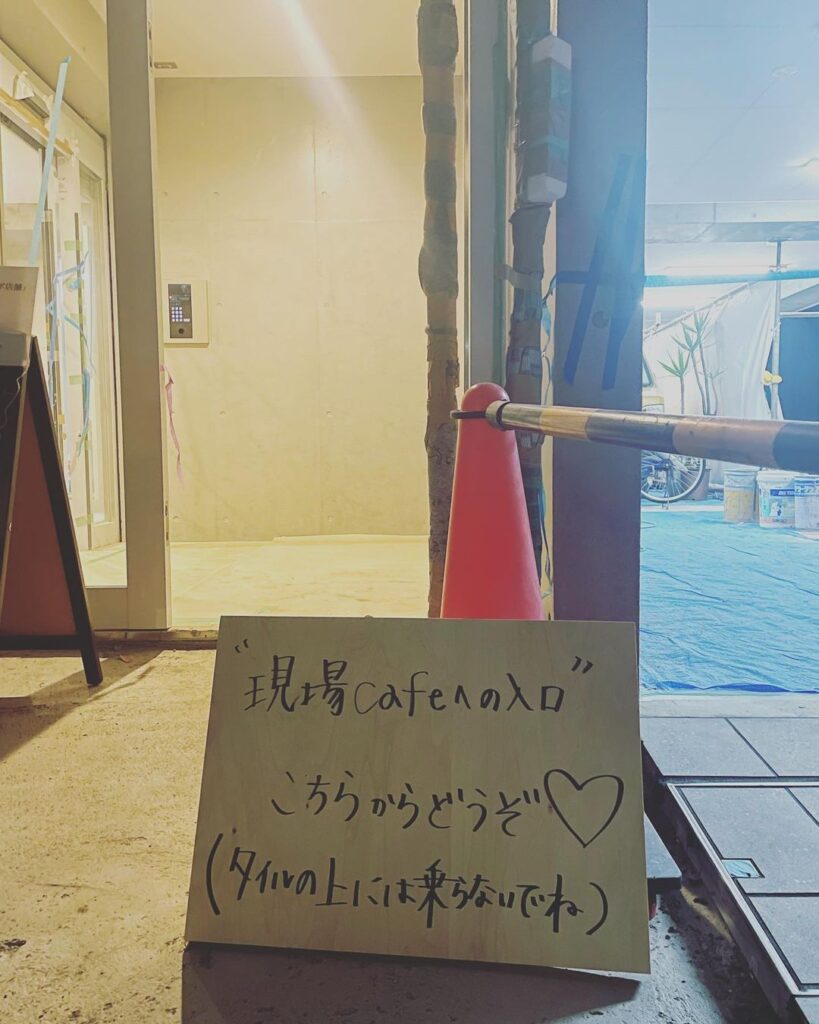 "現場cafeへの入口"
こちらからどうぞ♡
(タイルの上には乗らないでね)